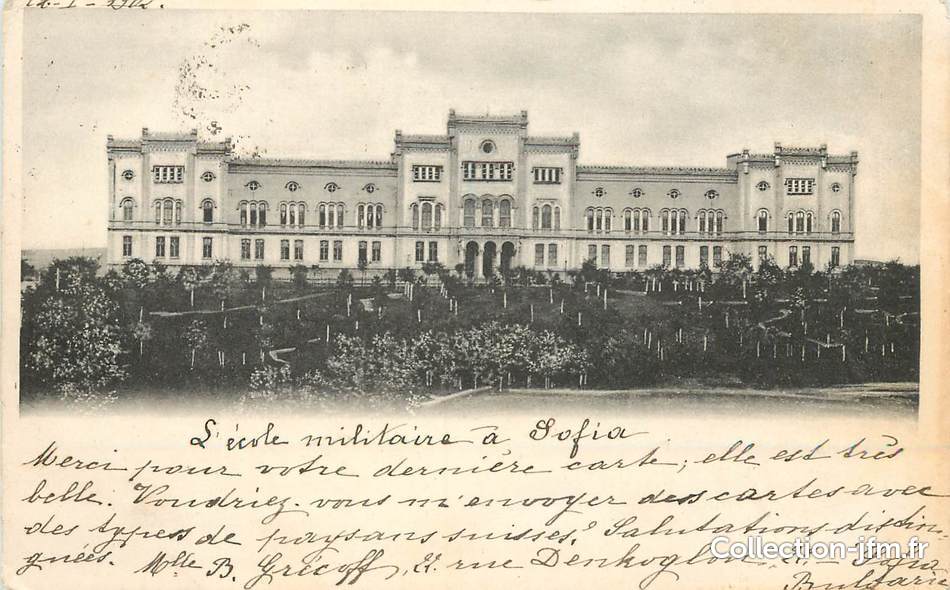 L'école militaire à Sofia
Merci pour votre dernière carte; elle est très
belle. Voudriez-vous m'envoyer des cartes avec
des types de paysans suisses? Salutations distin
guées. Mlle B. Grécoff, rue Denkoglou, Sofia
Bulgarie
Collection-jfm.fr